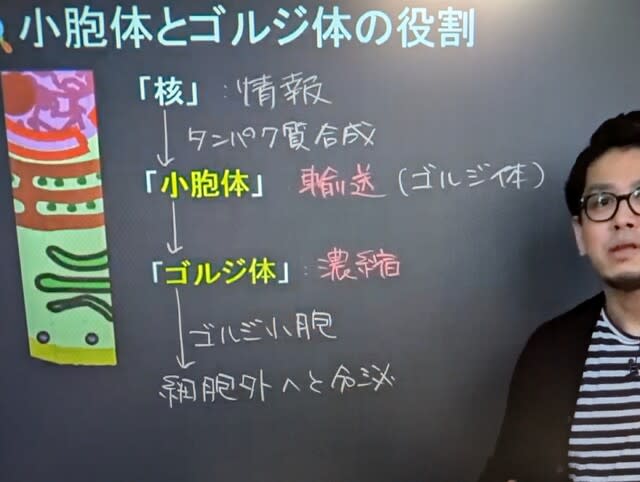 小胞体とゴルジ体の役割
「核」:情報
タンパク質合成
「小胞体」 輸送(ゴルジ体)
「ゴルジ体」:濃縮
ゴルジ小胞
細胞外へと分泌